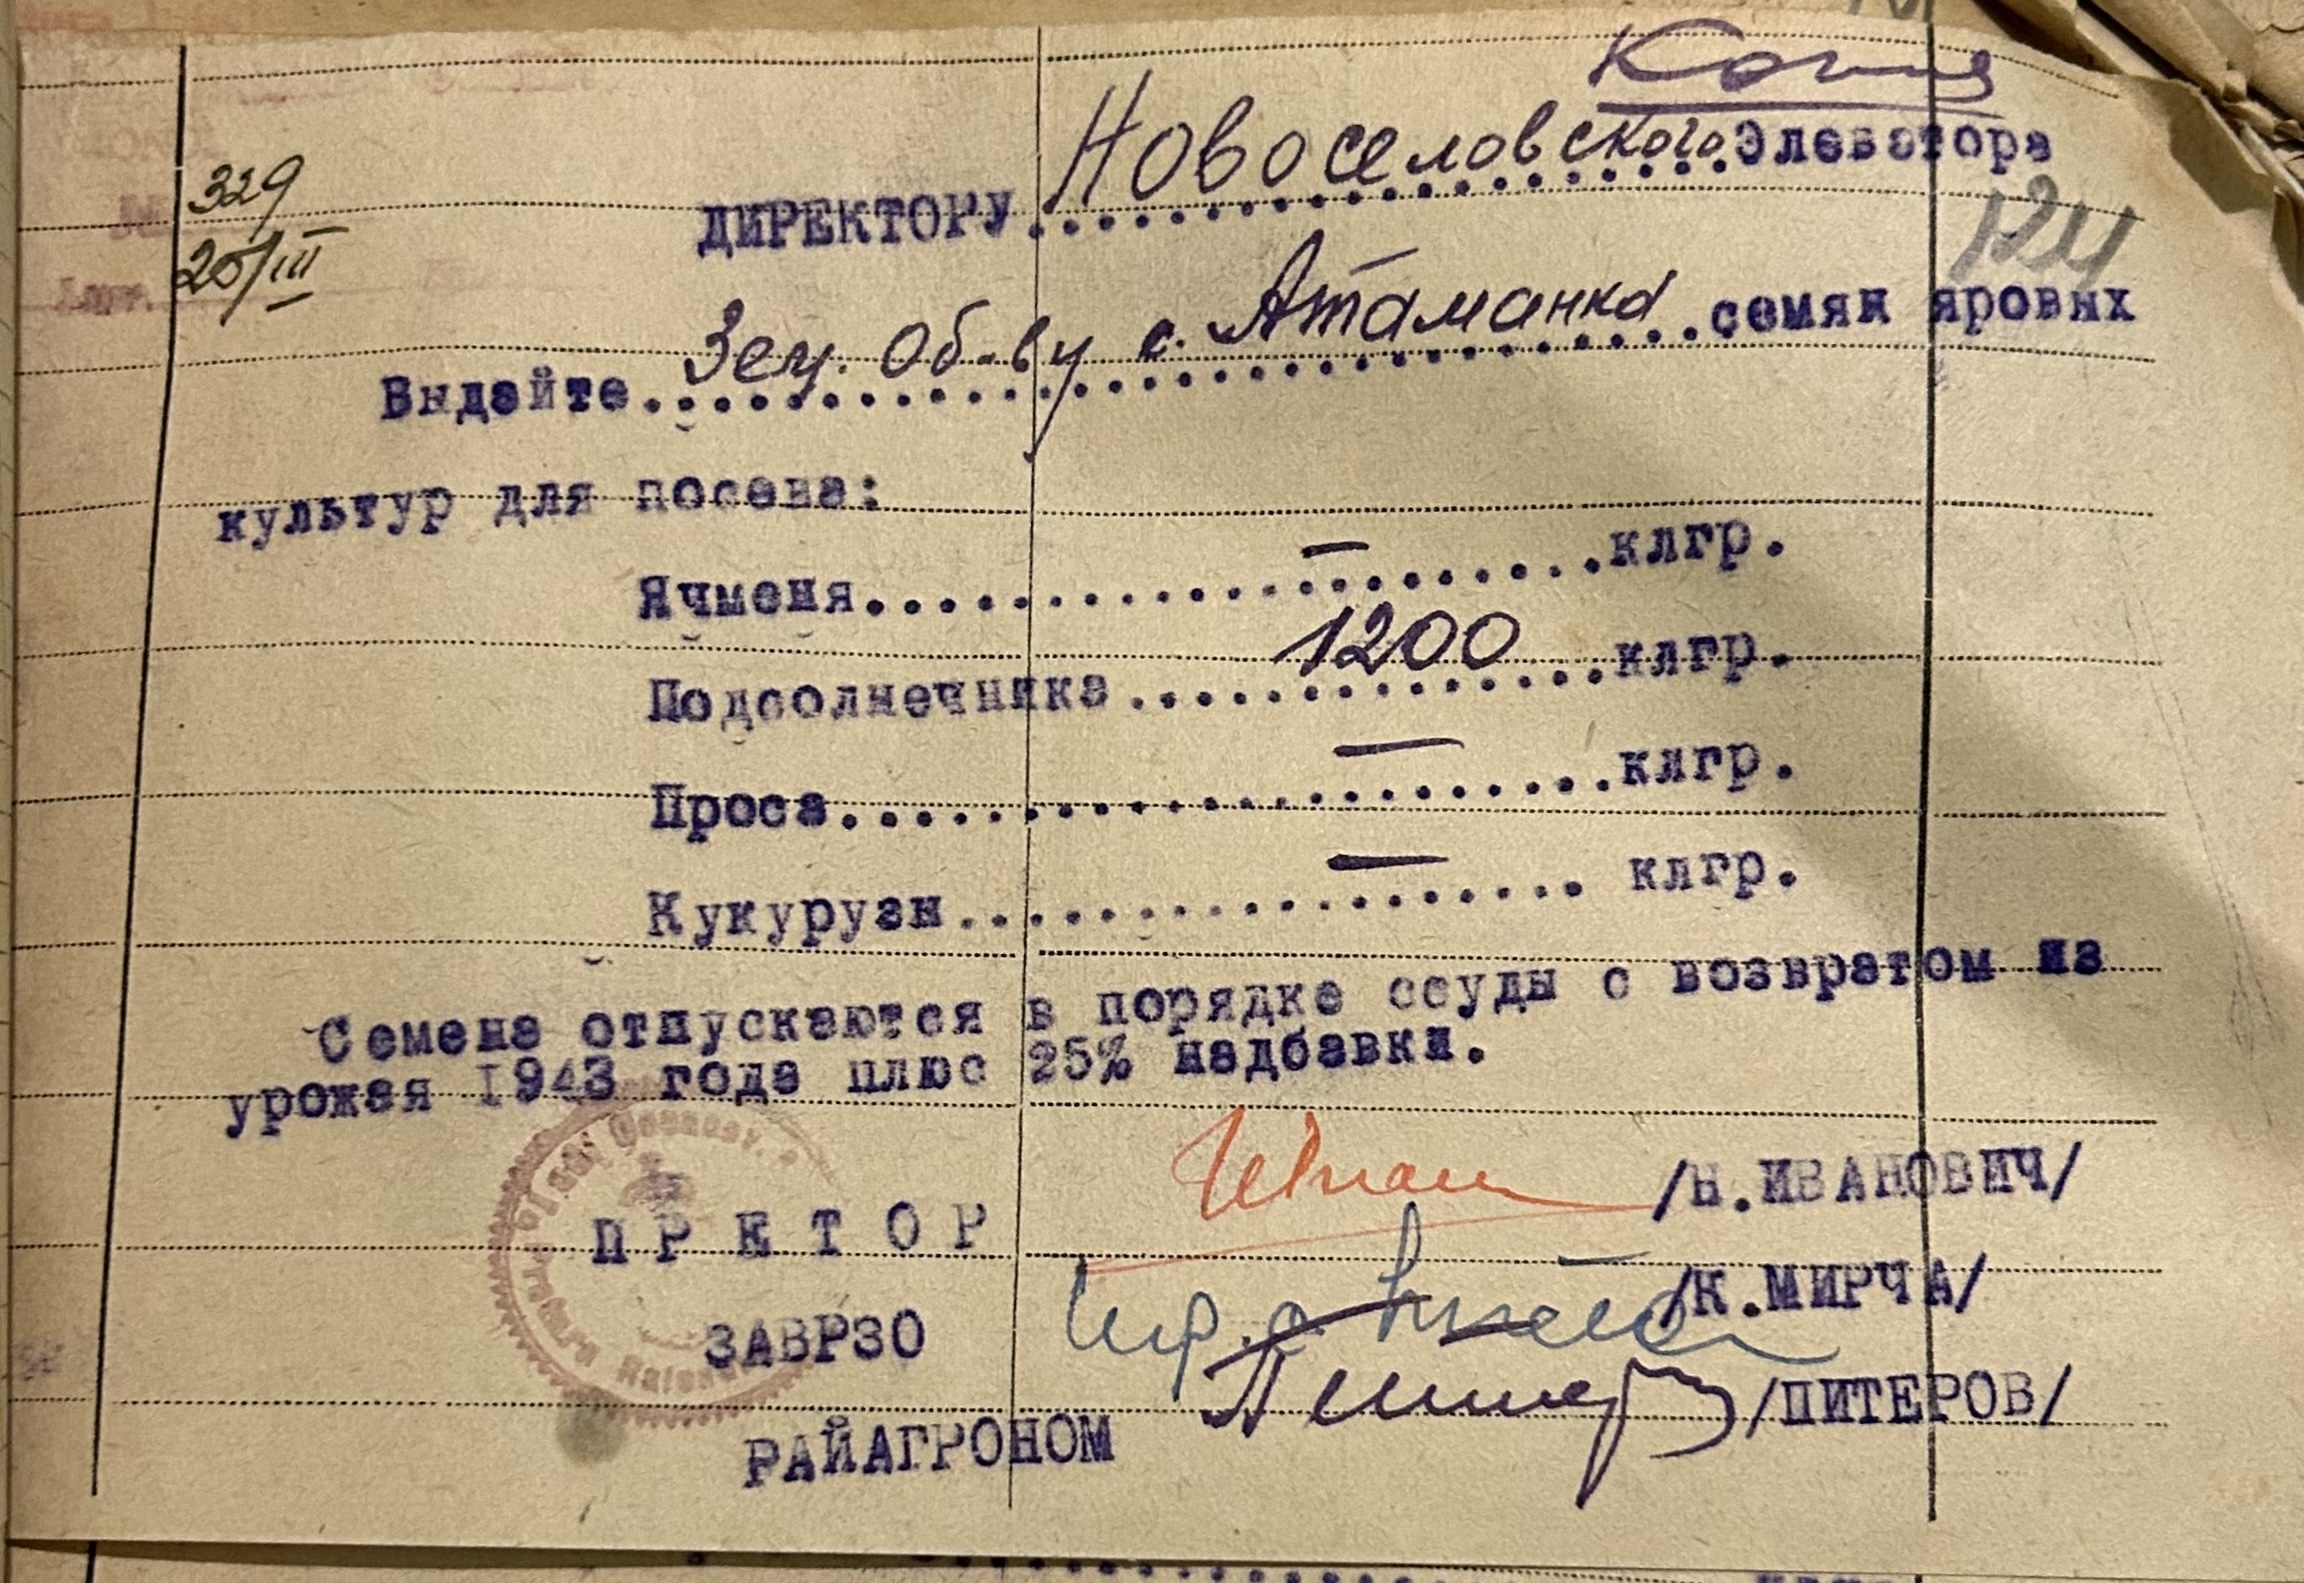 Копия
ДИРЕКТОРУ Новоселовского Элеватора
329
25/III
124
Выдайте Зем. Об-ву с. Атаманка семян яровых
культур для посева:
Ячменя — клгр.
Подсолнечника 1200 клгр.
Проса — клгр.
Кукурузы — клгр.
Семена отпускаются в порядке ссуды с возвратом из
урожая 1943 года плюс 25% надбавки.
ПРЕТОР /Н.ИВАНОВИЧ/
ЗАВРЗО /К.МИРЧА/
РАЙАГРОНОМ /ПИТЕРОВ/